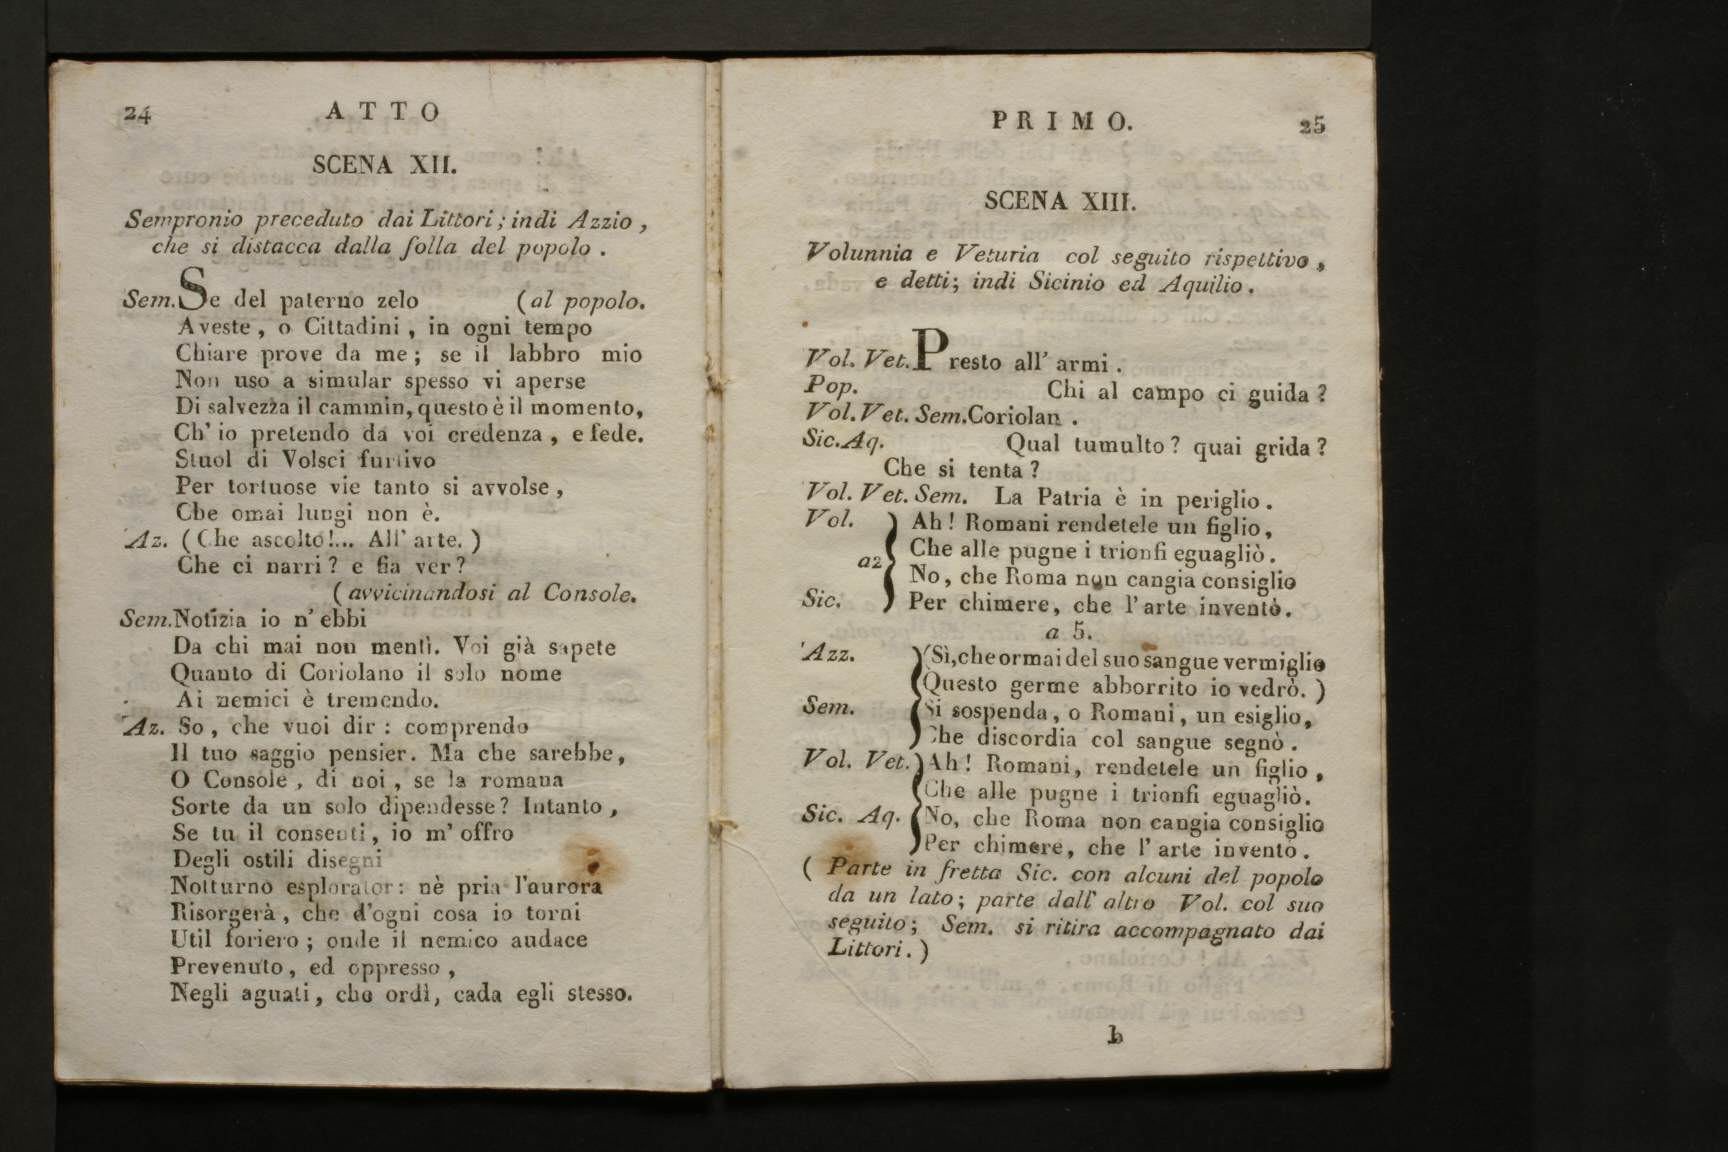 24 ATTO
SCENA XII.
Sempronio preceduto dai Littori; indi Azzio,
che si distacca dalla folla del popolo.
Sem. Se del paterno zelo (al popolo.
Aveste, o Cittadini, in ogni tempo
Chiare prove da me; se il labbro mio
Non uso a simular spesso vi aperse
Di salvezza il cammin, questo è il momento,
Ch' io pretendo da voi credenza, e fede.
Stuol di Volsci furtivo
Per tortuose vie tanto si avvolse,
Che omai lungi non è.
Az. (Che ascolto!... All' arte.)
Che ci narri? e fia ver?
(avvicinandosi al Console.
Sem. Notizia io n' ebbi
Da chi mai non mentì. Voi già sapete
Quanto di Coriolano il solo nome
Ai nemici è tremendo.
Az. So, che vuoi dir: comprendo
Il tuo saggio pensier. Ma che sarebbe,
O Console, di noi, se la romana
Sorte da un solo dipendesse? Intanto,
Se tu il consenti, io m' offro
Degli ostili disegni
Notturno esplorator: nè pria l'aurora
Risorgerà, che d'ogni cosa io torni
Util foriero; onde il nemico audace
Prevenuto, ed oppresso,
Negli aguati, che ordì, cada egli stesso.
PRIMO. 25
SCENA XIII.
Volunnia e Veturia col seguito rispettivo,
e detti; indi Sicinio ed Aquilio.
Vol. Vet. Presto all' armi.
Pop. Chi al campo ci guida?
Vol. Vet. Sem. Coriolan.
Sic. Aq. Qual tumulto? quai grida?
Che si tenta?
Vol. Vet. Sem. La Patria è in periglio.
Vol. Ah! Romani rendetele un figlio,
Che alle pugne i trionfi eguagliò.
a2 No, che Roma non cangia consiglio
Sic. Per chimere, che l'arte inventò.
a 5.
Azz. (Sì, che ormai del suo sangue vermiglio
Questo germe abborrito io vedrò.)
Sem. Si sospenda, o Romani, un esiglio,
Che discordia col sangue segnò.
Vol. Vet. Ah! Romani, rendetele un figlio,
Che alle pugne i trionfi eguagliò.
Sic. Aq. No, che Roma non cangia consiglio
Per chimere, che l' arte inventò.
( Parte in fretta Sic. con alcuni del popolo
da un lato; parte dall' altro Vol. col suo
seguito; Sem. si ritira accompagnato dai
Littori.)
b